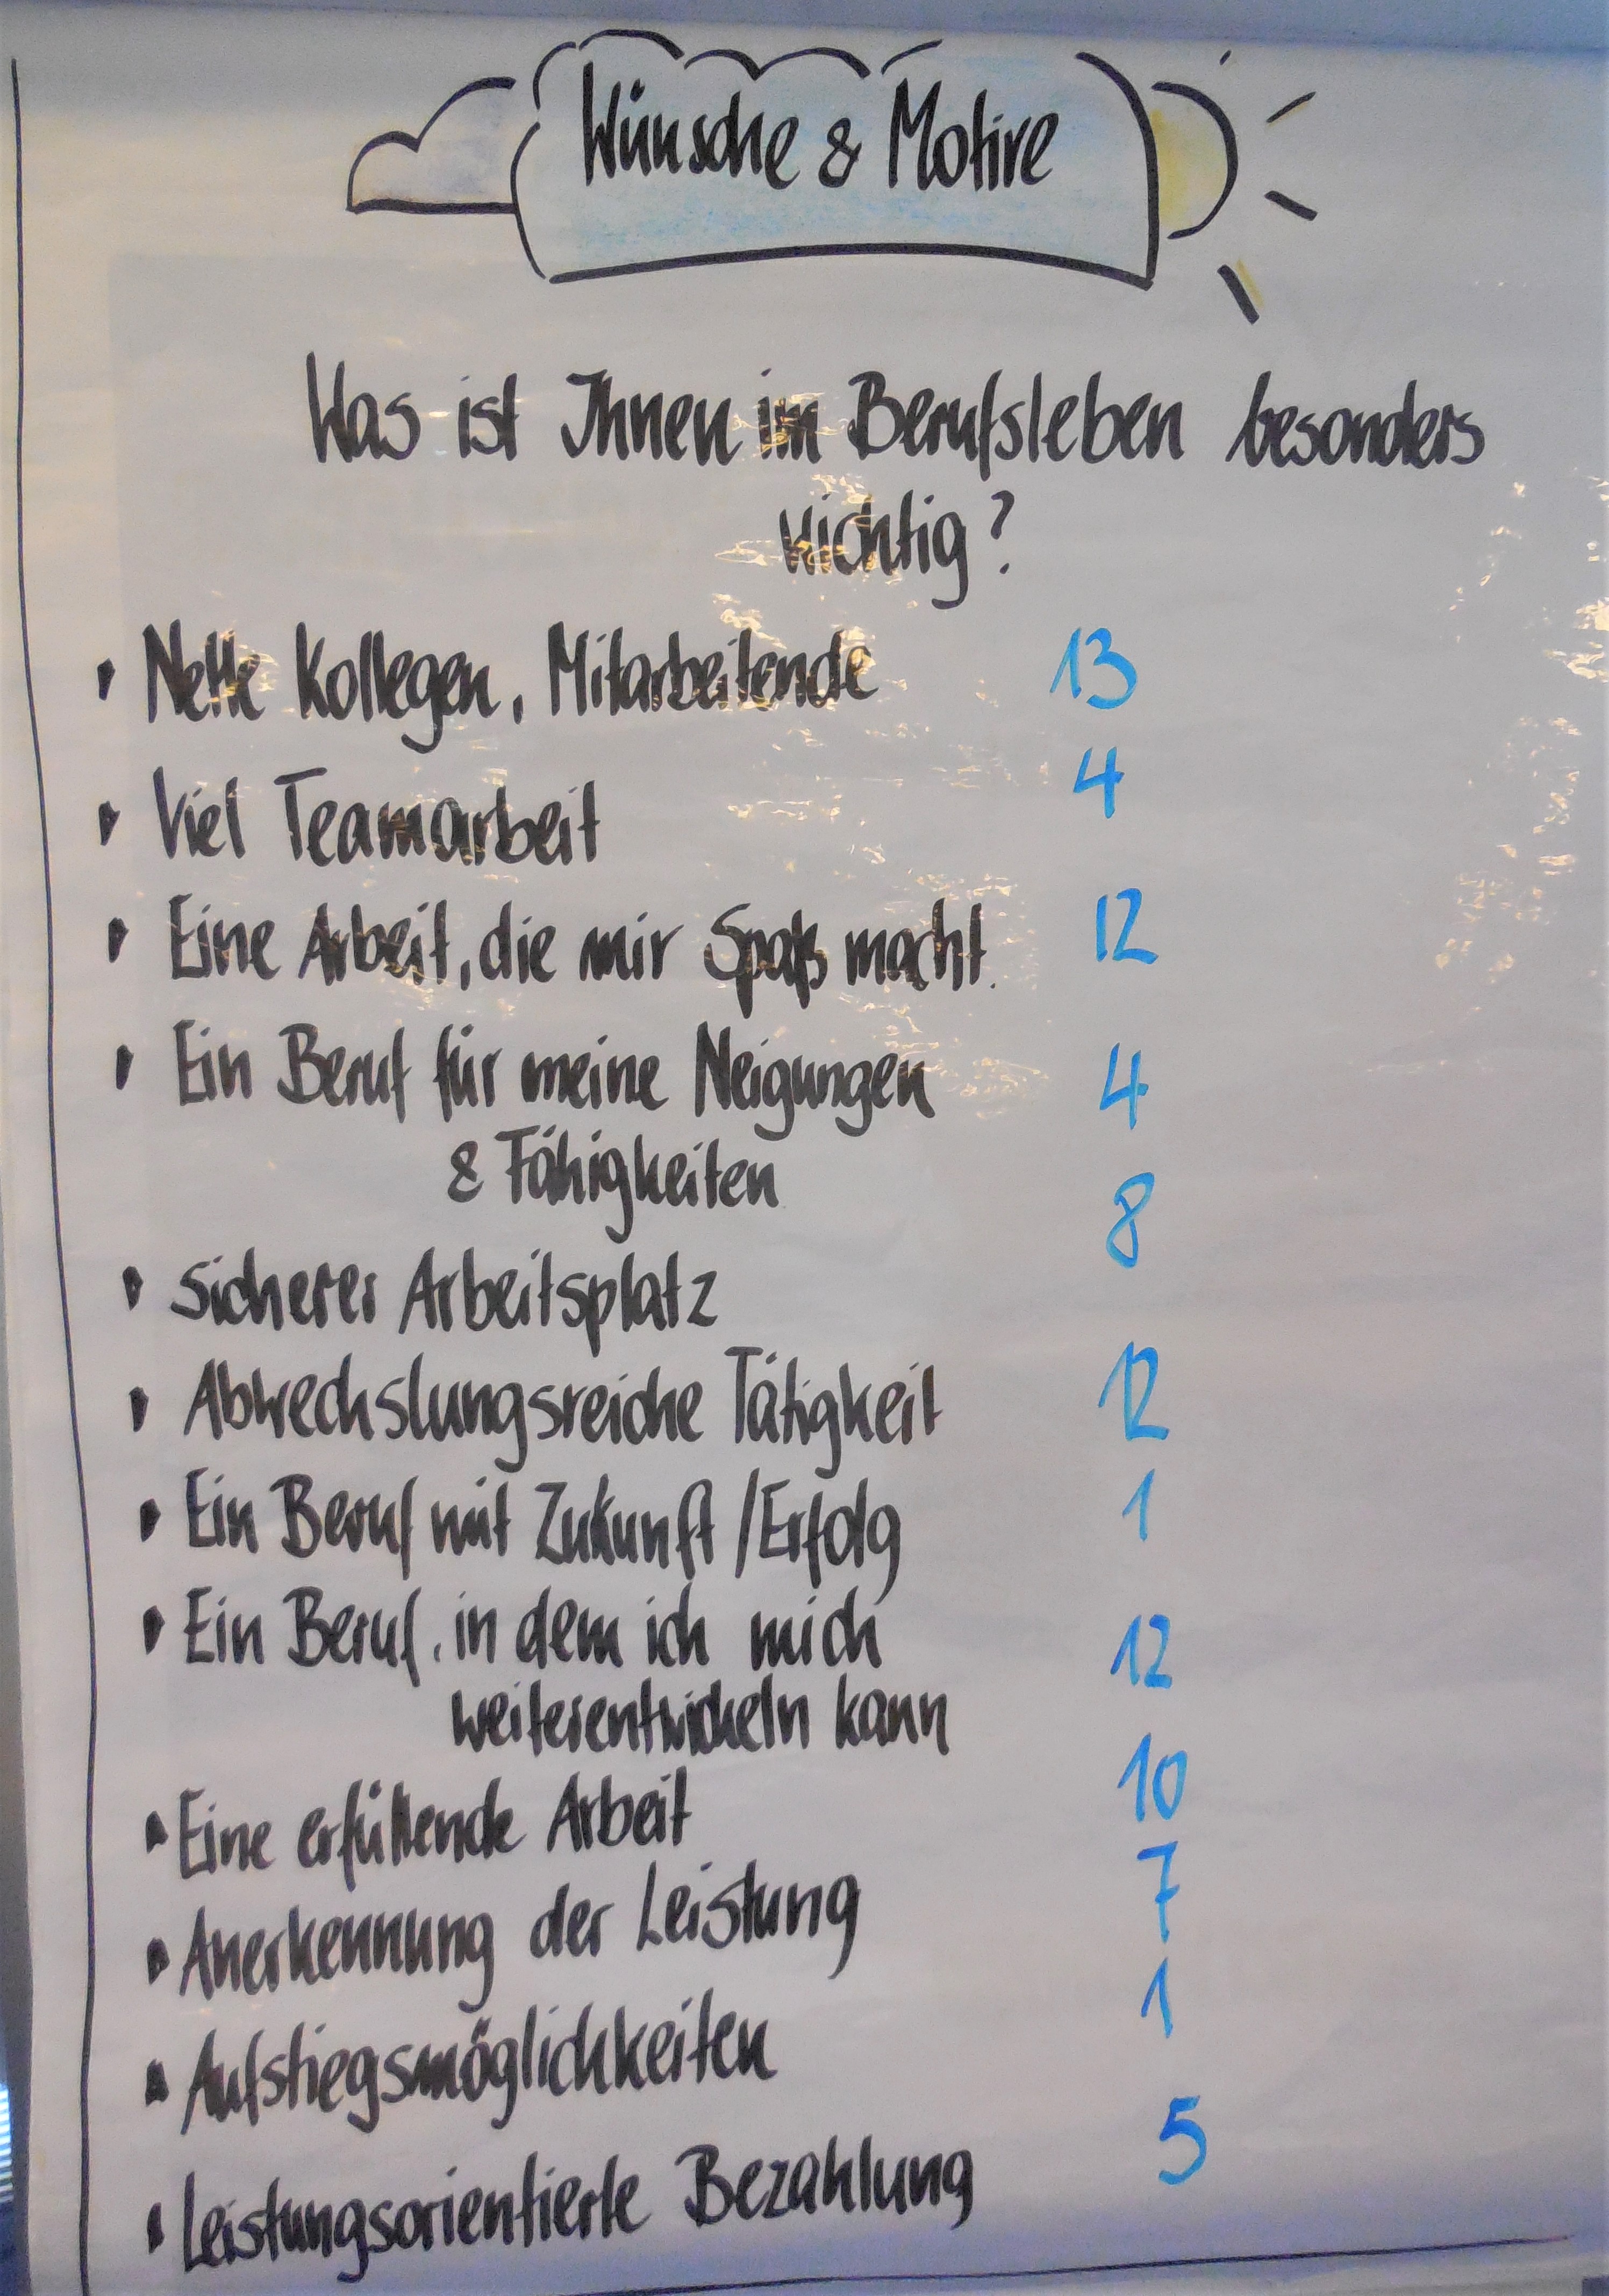 Wünsche & Motive
Was ist Ihnen im Berufsleben besonders
wichtig?
• Nette Kollegen, Mitarbeitende 13
• Viel Teamarbeit 4
• Eine Arbeit, die mir Spaß macht. 12
• Ein Beruf für meine Neigungen 4
& Fähigkeiten
• Sicherer Arbeitsplatz 8
• Abwechslungsreiche Tätigkeit 12
• Ein Beruf mit Zukunft / Erfolg 1
• Ein Beruf, in dem ich mich 12
weiterentwickeln kann
• Eine erfüllende Arbeit 10
• Anerkennung der Leistung 7
• Aufstiegsmöglichkeiten 1
• Leistungsorientierte Bezahlung 5